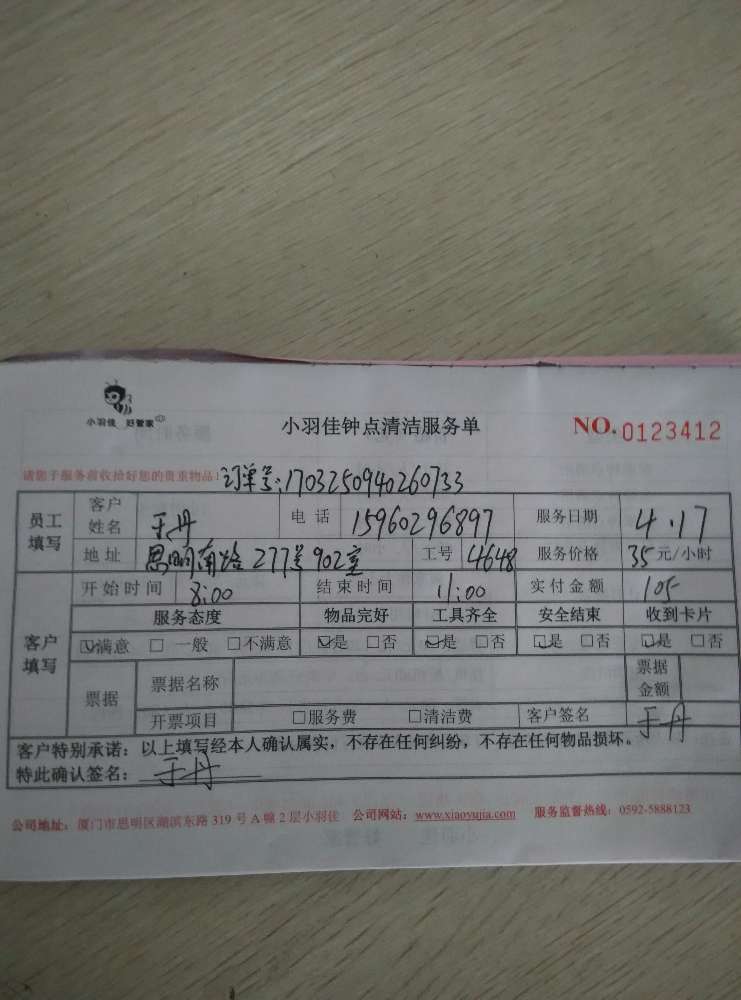 小羽佳 好管家
小羽佳钟点清洁服务单
NO.0123412
请您于服务前收拾好您的贵重物品!
订单号:1703250940260733
员工填写 客户姓名 于丹 电话 15960296897 服务日期 4.17
地址 思明南路277号902室 工号 4648 服务价格 35元/小时
客户填写 开始时间 8:00 结束时间 11:00 实付金额 105
服务态度 物品完好 工具齐全 安全结束 收到卡片
☑满意 □一般 □不满意 ☑是 □否 ☑是 □否 ☑是 □否 ☑是 □否
票据 票据名称 票据金额
开票项目 □服务费 □清洁费 客户签名 于丹
客户特别承诺:以上填写经本人确认属实,不存在任何纠纷,不存在任何物品损坏。
特此确认签名: 于丹
公司地址:厦门市思明区湖滨东路319号A幢2层小羽佳 公司网站:www.xiaoyujia.com 服务监督热线:0592-5888123